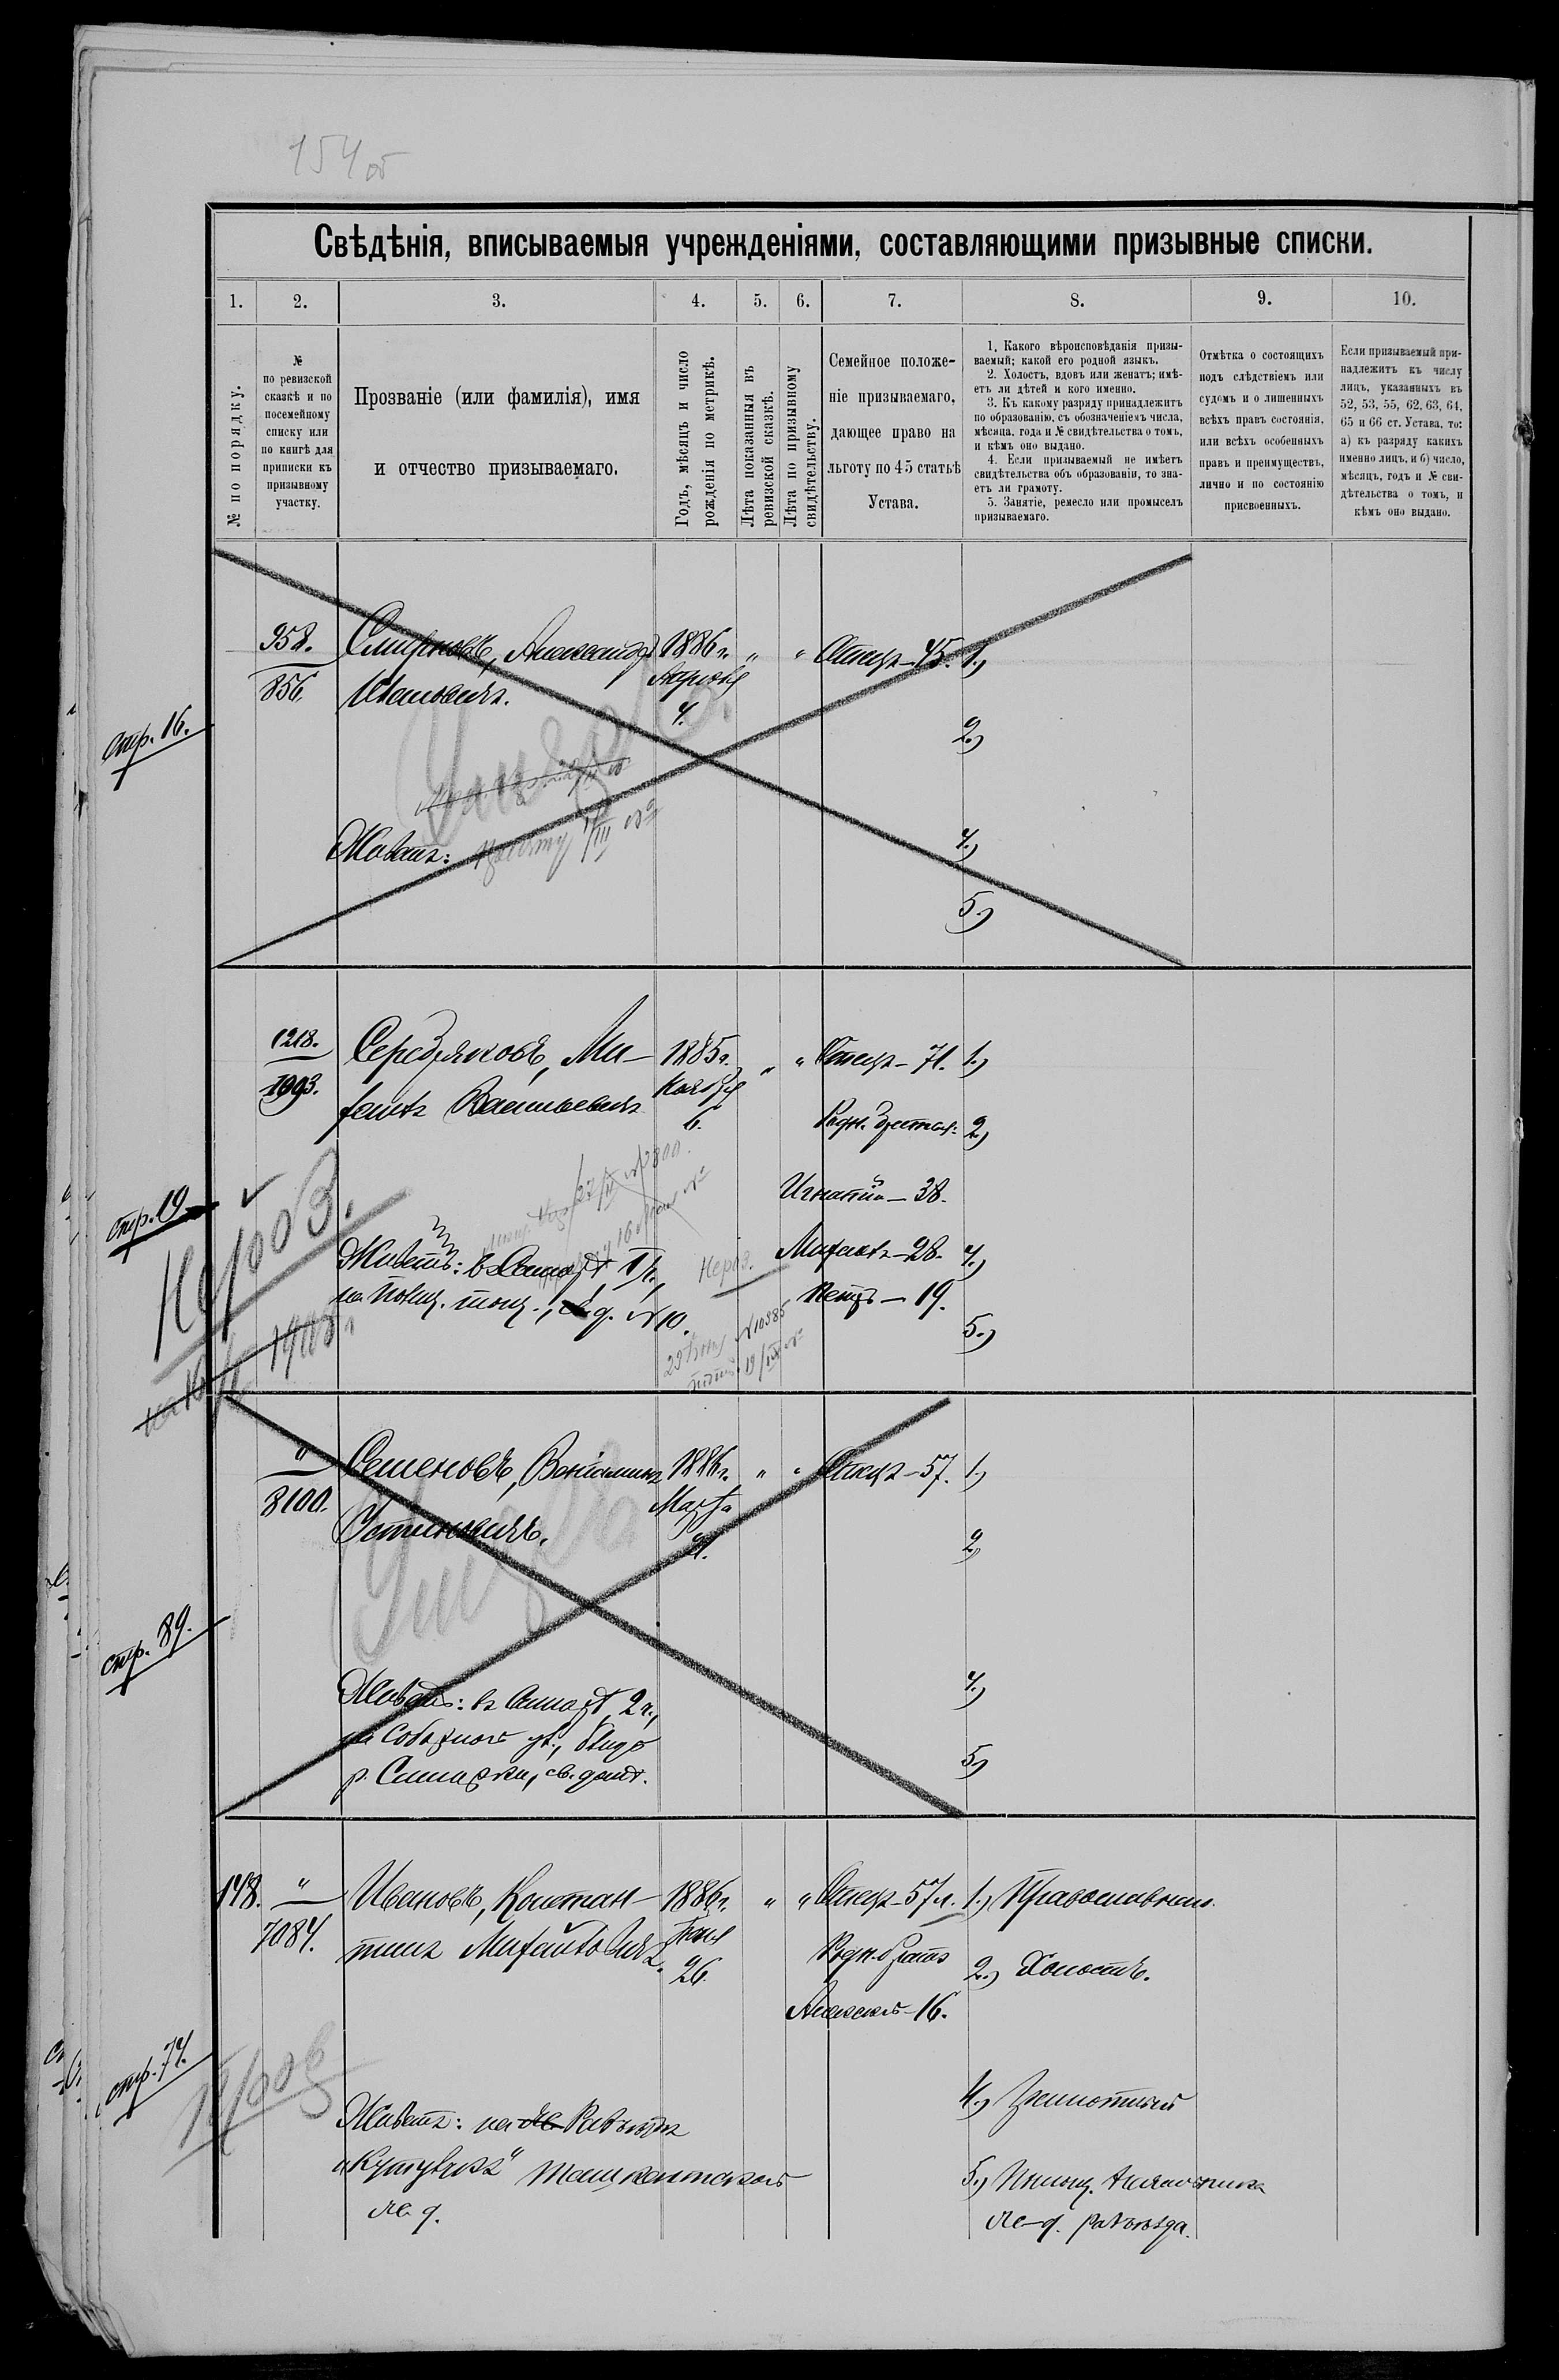 154 об
Свѣдѣнія, вписываемыя учрежденіями, составляющими призывные списки.
1. 2. 3. 4. 5. 6. 7. 8. 9. 10.
№ по порядку.
№
по ревизской
сказкѣ и по
посемейному
списку или
по книгѣ для
приписки къ
призывному
участку.
Прозваніе (или фамилія), имя
и отчество призываемаго.
Годъ, мѣсяцъ и число
рожденія по метрикѣ.
Лѣта показанныя въ
ревизской сказкѣ.
Лѣта по призывному
свидѣтельству.
Семейное положе-
ніе призываемаго,
дающее право на
льготу по 45 статьѣ
Устава.
1. Какого вѣроисповѣданія призы-
ваемый; какой его родной языкъ.
2. Холостъ, вдовъ или женатъ; имѣ-
етъ ли дѣтей и кого именно.
3. Къ какому разряду принадлежитъ
по образованію, съ обозначеніемъ числа,
мѣсяца, года и № свидѣтельства о томъ,
и кѣмъ оно выдано.
4. Если призываемый не имѣетъ
свидѣтельства объ образованіи, то зна-
етъ ли грамоту.
5. Занятіе, ремесло или промыселъ
призываемаго.
Отмѣтка о состоящихъ
подъ слѣдствіемъ или
судомъ и о лишенныхъ
всѣхъ правъ состоянія,
или всѣхъ особенныхъ
правъ и преимуществъ,
лично и по состоянію
присвоенныхъ.
Если призываемый при-
надлежитъ къ числу
лицъ, указанныхъ въ
52, 53, 55, 62, 63, 64,
65 и 66 ст. Устава, то:
а) къ разряду какихъ
именно лицъ, и б) число,
мѣсяцъ, годъ и № сви-
дѣтельства о томъ, и
кѣмъ оно выдано.
стр. 16.
958.
856.
Смирновъ, Александръ
Ивановичъ.
1886 г.
Апрѣля
4.
" " Отецъ – 45.
1.)
2.)
4.)
5.)
Живетъ:
стр. 19
1218.
1093.
Серебряковъ, Ми-
хаилъ Васильевичъ
1885 г.
Ноября
6.
" " Отецъ – 71.
Родн. братья:
Игнатій – 38.
Михаилъ – 28.
Петръ – 19.
1.)
2.)
4.)
5.)
Живетъ: въ Самарѣ
д. №10.
Нероз.
1908 г.
№ 10385
стр. 89.
"
8100.
Семеновъ, Веніаминъ
Устиновичъ.
1886 г.
Марта
" " Отецъ – 57.
1.)
2.)
4.)
5.)
Живетъ: въ Самарѣ, 2 ч.,
на Соборной ул., близъ
р. Самарки, св. домъ.
стр. 74.
148.
"
7084.
Ивановъ, Констан-
тинъ Михайловичъ.
1886 г.
Мая
26
" " Отецъ – 57 л.
Родн. братъ
Алексѣй – 16.
1.) Православный.
2.) Холостъ.
4.) Грамотный
5.)
ж-д. разъѣзда.
Живетъ: на разъѣздѣ
„Кутулукъ" Ташкентской
ж д.